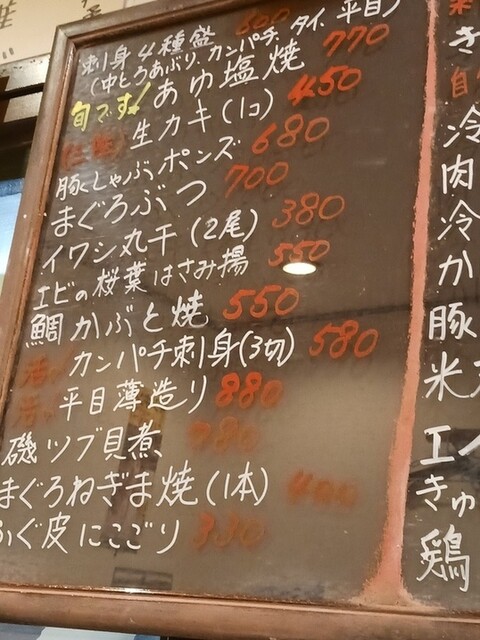 刺身4種盛 600
(中とろあぶり、カンパチ、タイ、平目)
旬です! あゆ塩焼 770
生カキ(1コ) 450
豚しゃぶポンズ 680
まぐろぶつ 700
イワシ丸干(2尾) 380
エビの桜葉はさみ揚 550
鯛かぶと焼 550
活! カンパチ刺身(3切) 580
活! 平目薄造り 880
磯ツブ貝煮 780
まぐろねぎま焼(1本) 400
ふぐ皮にこごり 330
き
自
冷
肉
冷
か
豚
米
エイ
きゅ
鶏